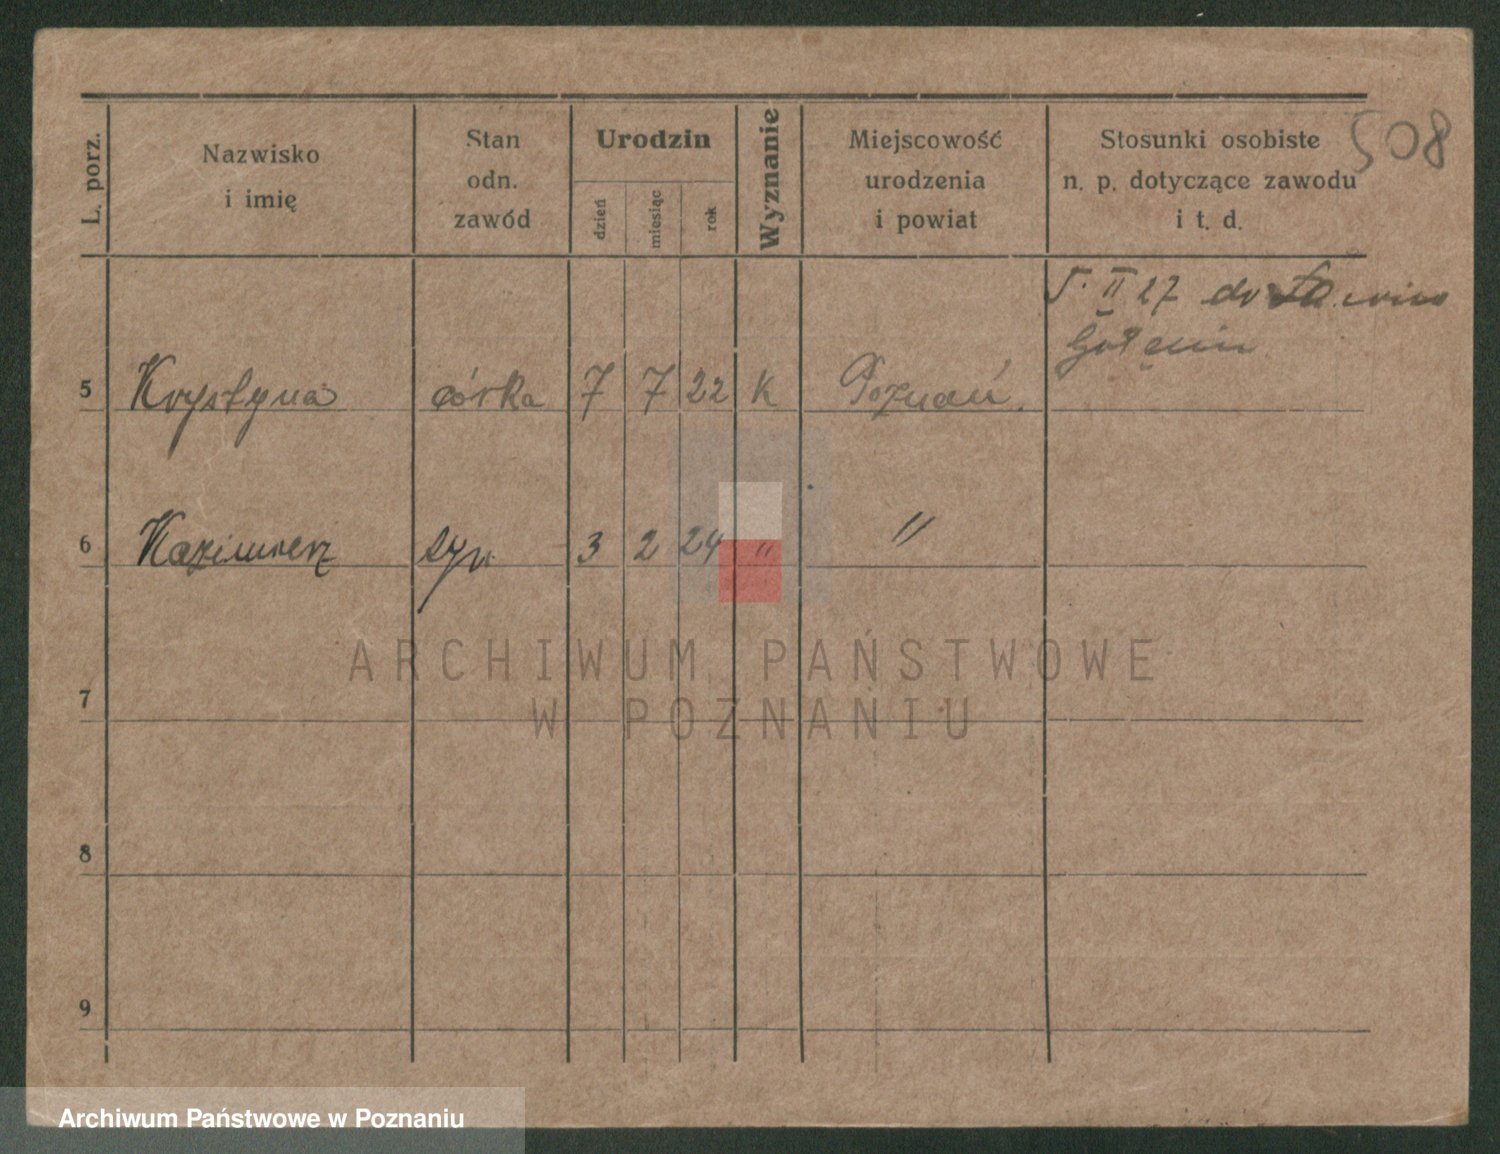 508
L. porz.
Nazwisko i imię
Stan odn. zawód
Urodzin
dzień miesiąc rok
Wyznanie
Miejscowość urodzenia i powiat
Stosunki osobiste n. p. dotyczące zawodu i t. d.
5. II 27 do
5 Krystyna córka 7 7 22 K Poznań.
6 Kazimierz syn 3 2 24 " "
7
8
9
ARCHIWUM PAŃSTWOWE
W POZNANIU
Archiwum Państwowe w Poznaniu